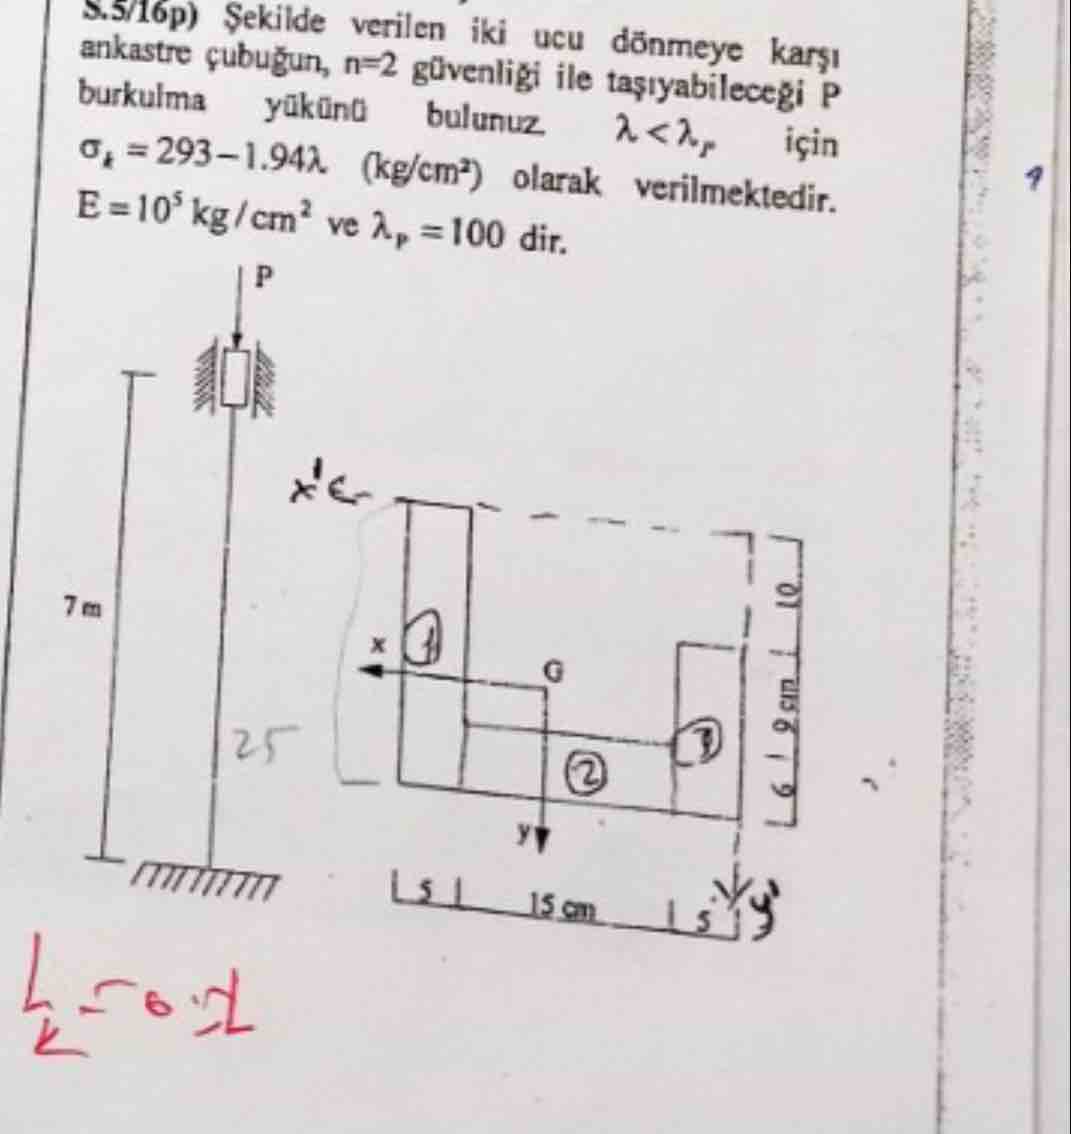 S.5/16p) Şekilde verilen iki ucu dönmeye karşı
ankastre çubuğun, n=2 güvenliği ile taşıyabileceği P
burkulma yükünü bulunuz. λ<λₚ için
σₖ = 293-1.94λ (kg/cm²) olarak verilmektedir.
E=10⁵ kg/cm² ve λₚ = 100 dir.
P
x'
10
7 m
x
1
G
9 cm
25
3
2
6
y
5
15 cm
5
y'